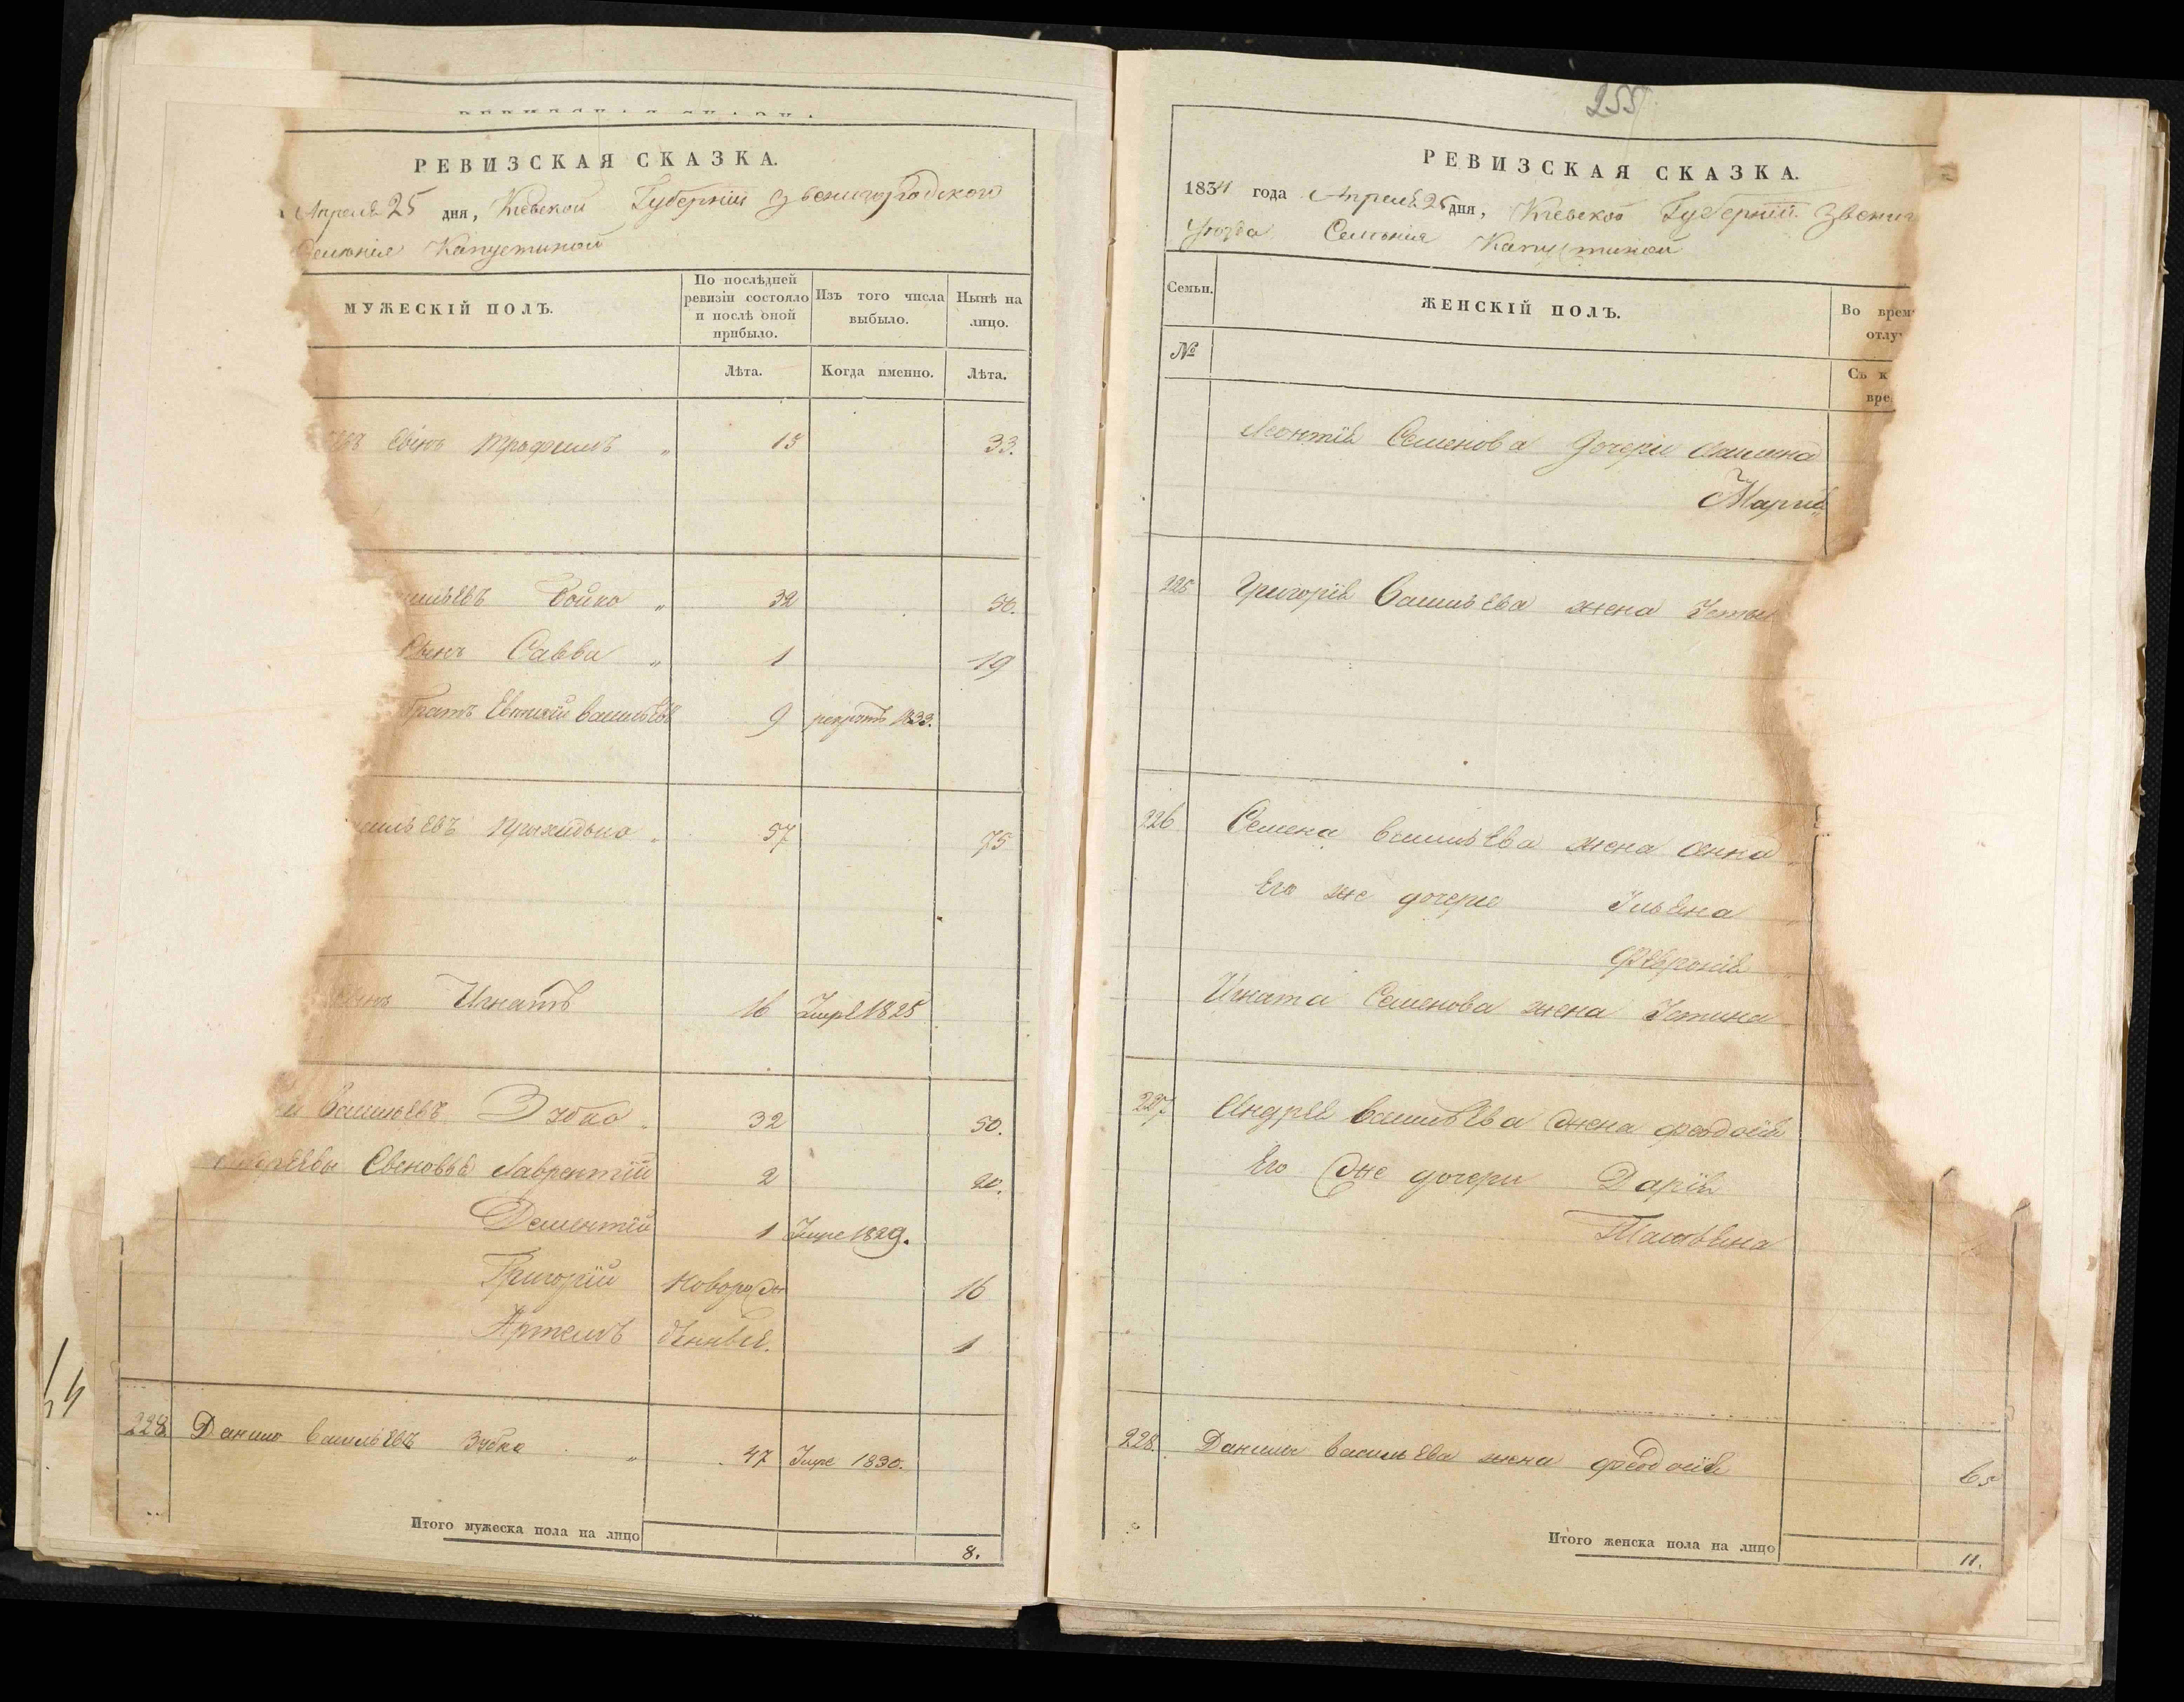 РЕВИЗСКАЯ СКАЗКА.
Апреля 25 дня, Киевской Губернїи Звенигородского
Селенія Капустиной
МУЖЕСКІЙ ПОЛЪ.
По послѣдней ревизіи состояло и послѣ оной прибыло.
Изъ того числа выбыло.
Нынѣ на лицо.
Лѣта.
Когда именно.
Лѣта.
Сынъ Трофимъ 15 33.
Бойко 32 50.
Сынъ Савва 1 19
братъ Евтихїй Васильевъ 9 рекрутъ 1833.
57 75
Сынъ Игнатъ 16 Умре 1825
Васильевъ Зубко 32 50.
Андреевы Сыновья Лаврентїй 2 20.
Дементїй 1 Умре 1829.
Григорїй Новорож 16
Артемъ денные. 1
228. Данило Васильевъ Зубко 47 Умре 1830.
Итого мужеска пола на лицо 8.
255
РЕВИЗСКАЯ СКАЗКА.
1834 года Апреля 25 дня, Киевской Губернїи Звениг
Уезда Селенія Капустиной
Семьи.
ЖЕНСКІЙ ПОЛЪ.
Во врем
отлу
№
Съ к
вре
Леонтїя Семенова дочери Акилина
Марїя
225 Григорїя Васильева жена Усти
226 Семена Васильева жена Анна
Его же дочери Ульяна
Феврония
Игната Семенова жена Устина
227 Андрея Васильева жена Феодосїя
Его же дочери Дарїя
Татьяна
228. Данила Васильева жена Феодосїя 65
Итого женска пола на лицо 11.